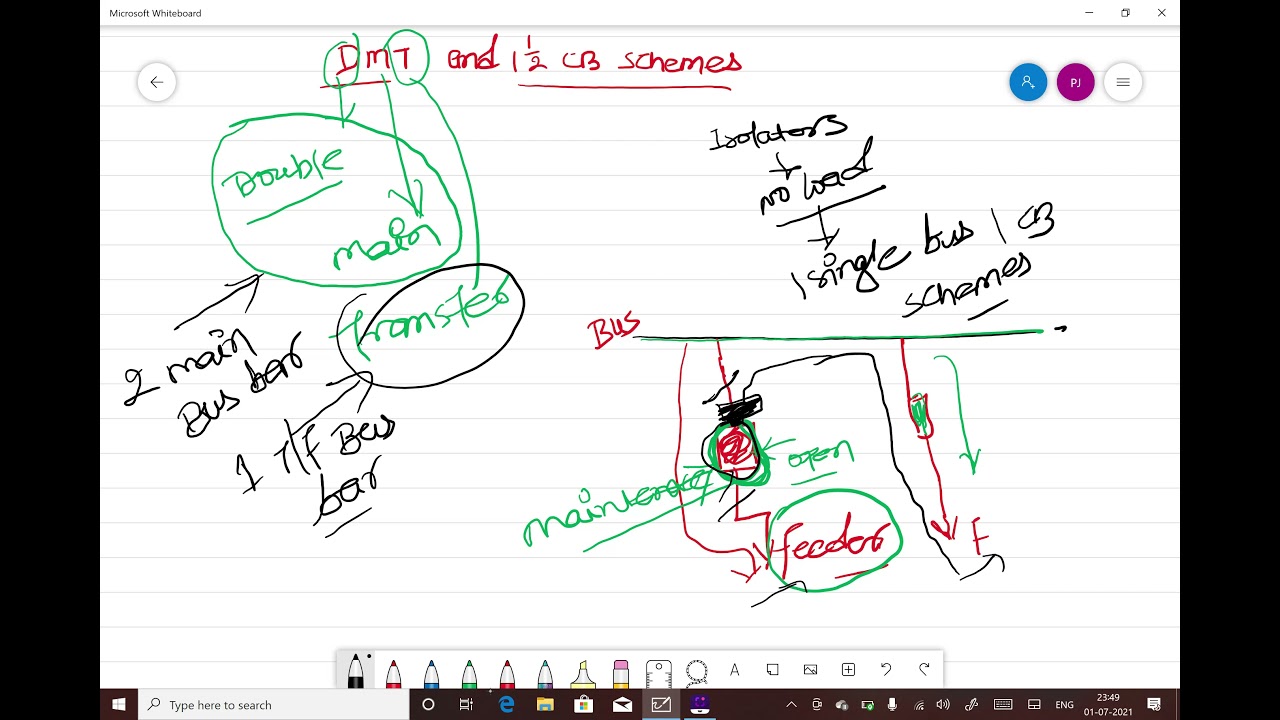 Microsoft Whiteboard
DMT and 1 1/2 CB schemes
PJ
Double
main
transfer
2 main
Bus bar
1 T/F Bus
bar
Isolators
no load
single bus 1 CB
schemes
Bus
open
feeder
F
A
Type here to search
ENG
23:49
01-07-2021